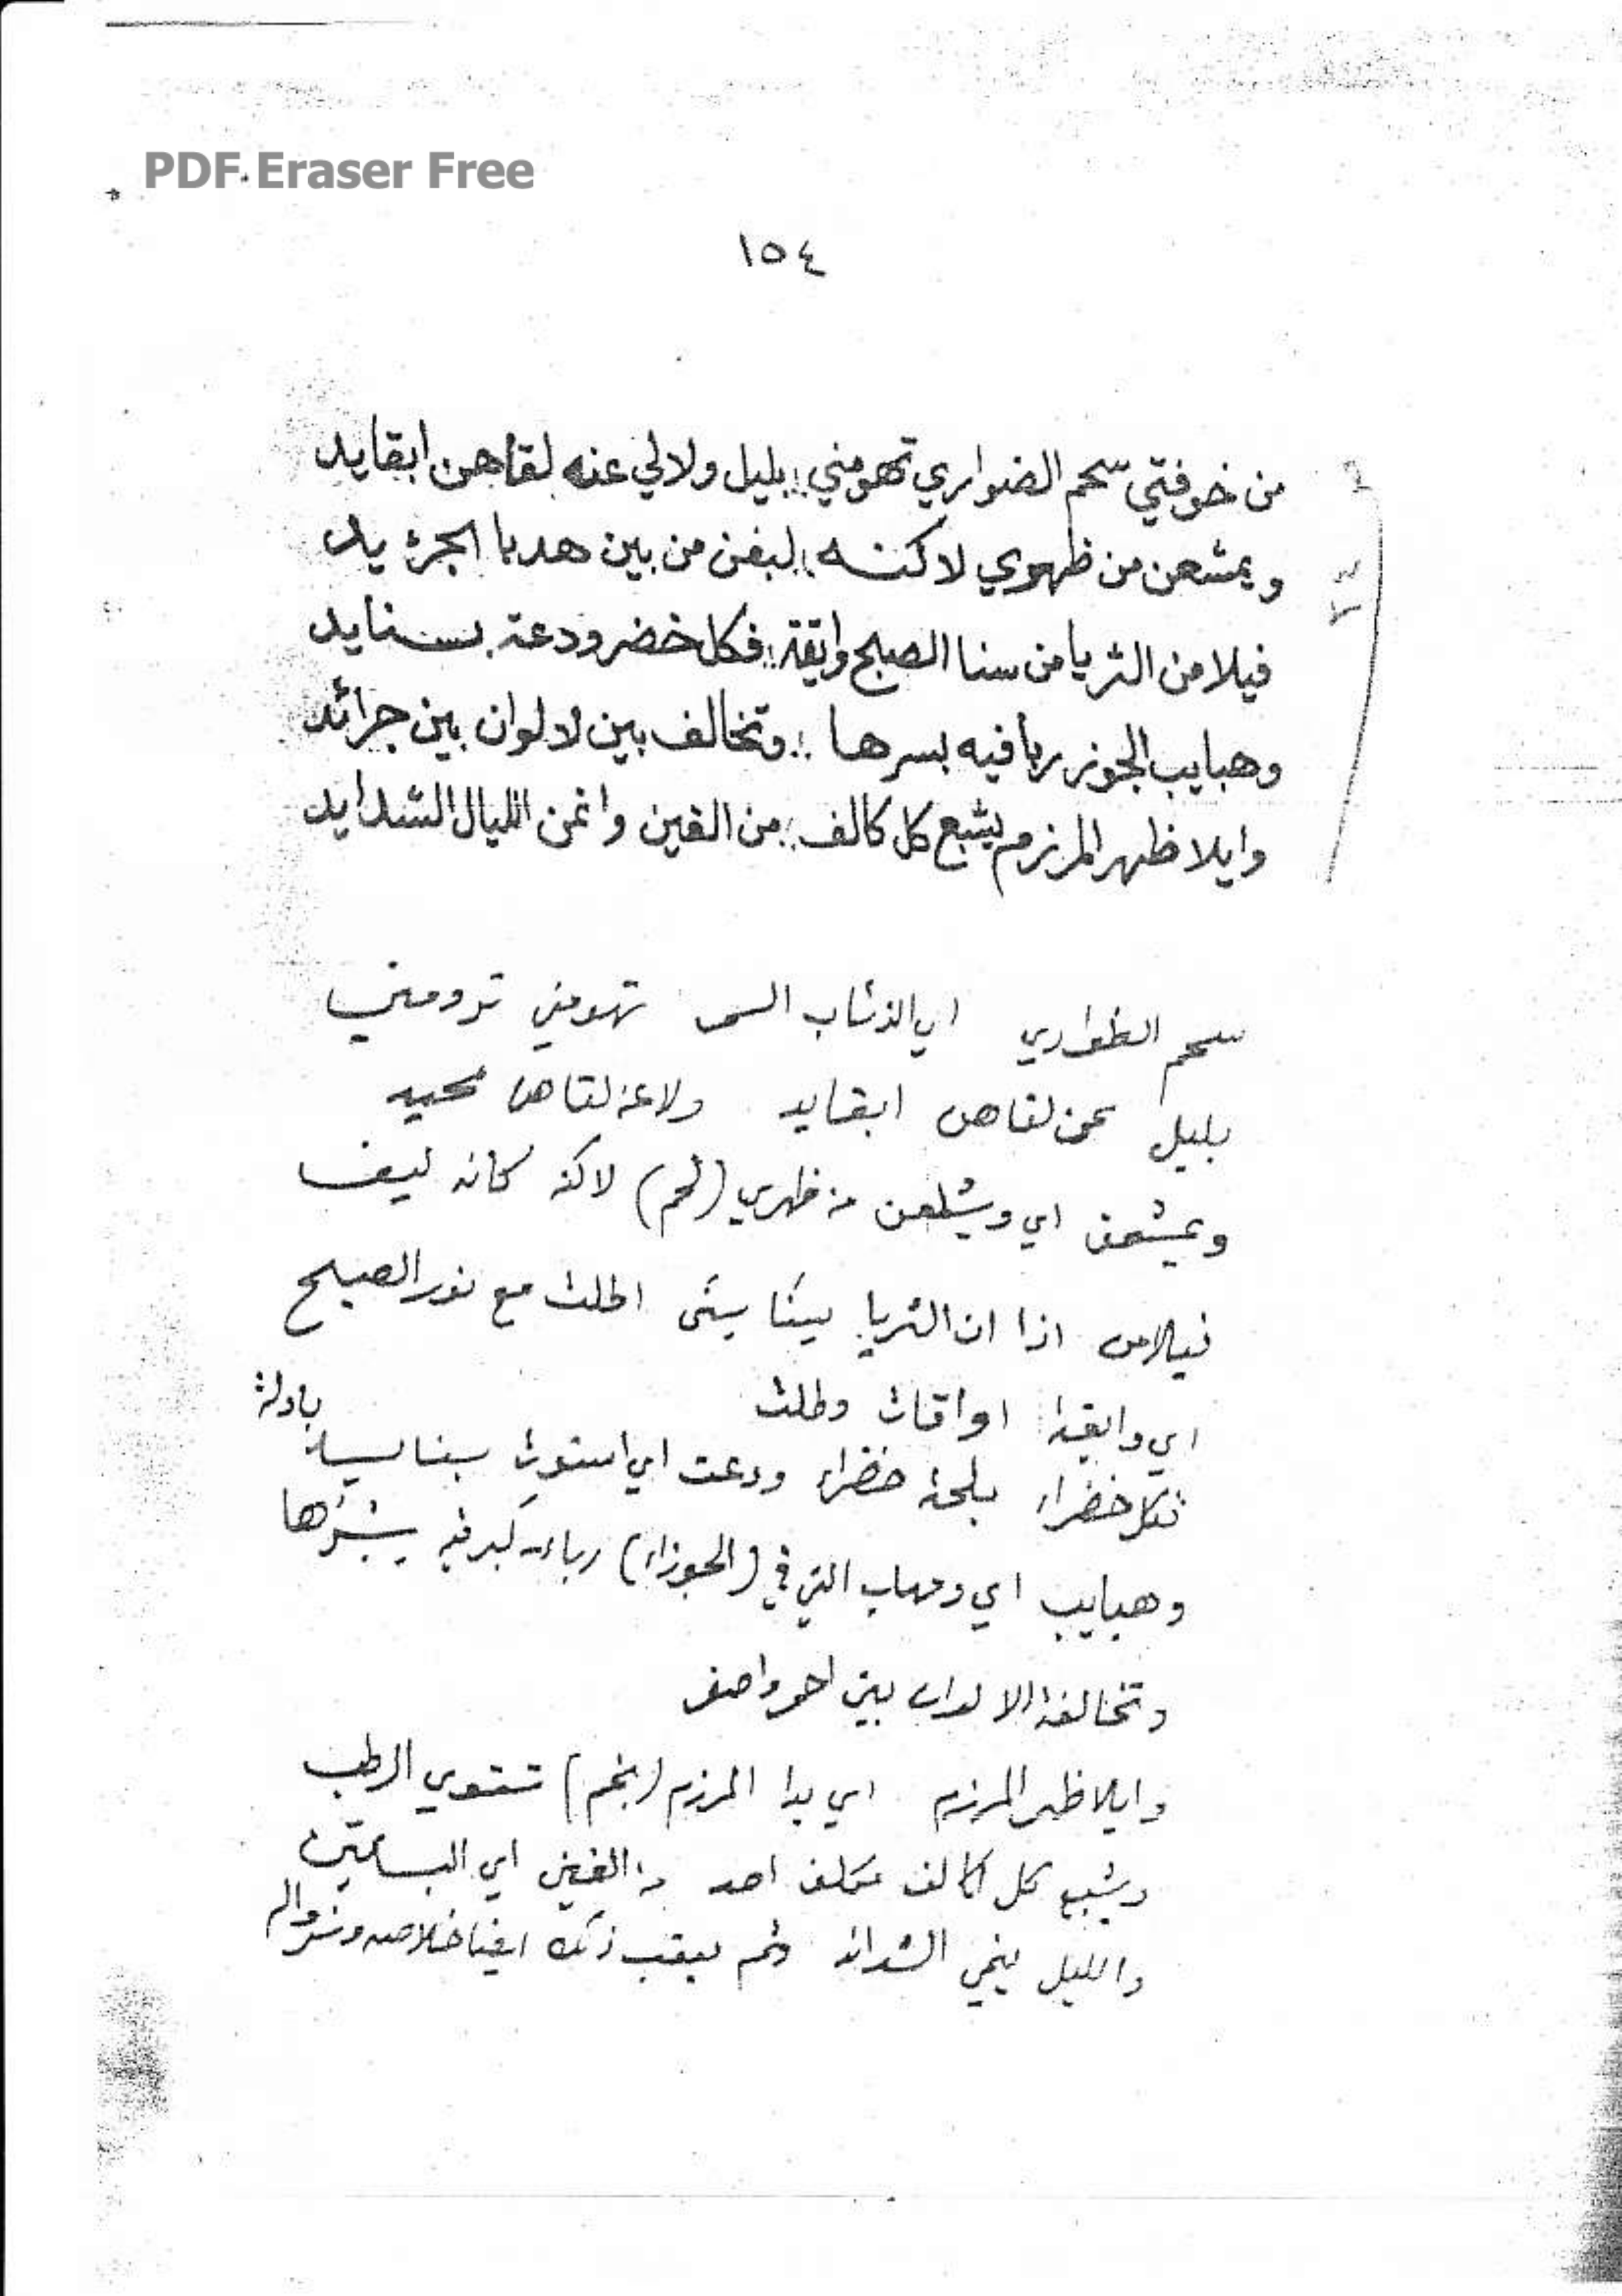 PDF Eraser Free
١٥٤
من خوفتي سحم الضواري تهومني :: بليل ولالي عنه لقاهن ابقايد
ويمشعن من ظهري لاكنه :: ليفن من بين هدبا الجرئيد
فيلا من الثريا من سنا الصبح وايقة :: فكل خضر ودعة بسنايد
وهبايب الجوزر ربا فيه بسرها :: وتخالف بين لالوان بين جرائد
وايلا ظهر المرزم يشبع كل كالف :: من الغين وانمن الليال الشدايد
سحم الظواري اي الذئاب السمر تهومني ترومني
بليل عن لقاهن ابقايد ولا عن لقاهن محيد
ويمشعن اي ويشلعن من ظهري (لحم) لاكنه كانه ليف
فيلا من اذا ان الثريا اطلت مع نور الصبح
اي وايقة او اقات وطلت
فكل خضراء بلحة خضراء ودعت اي استوت
وهبايب اي ومهاب التي في (الجوزاء) رباء كبر فيه بسرها
وتخالفة الالوان بين احمر واصفر
وايلا ظهر المرزم اي بدا المرزم (نجم) تستوي الرطب
ويشبع كل كالف من الغين اي البساتين
والليل ينمي الشدائد ذلك